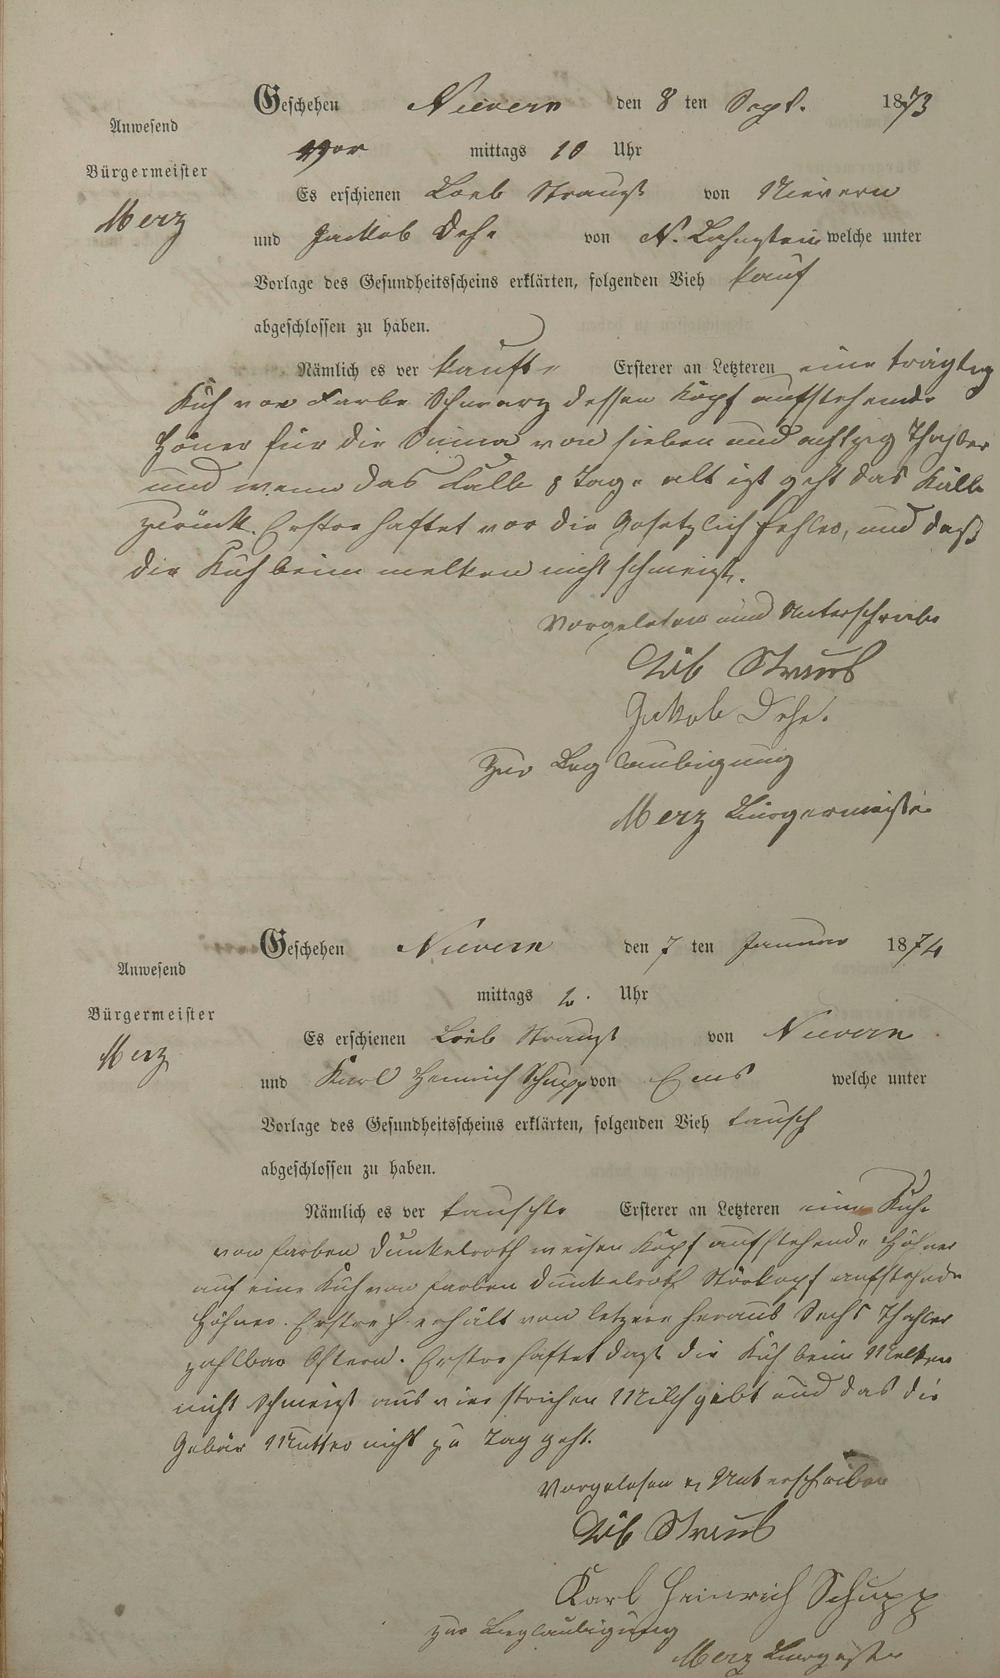 Geschehen Nievern den 8 ten Sept. 1873
Anwesend
Vor mittags 10 Uhr
Bürgermeister
Merz
Es erschienen Loeb Strauß von Nievern
und Jackob Dehe von N. Lahnstein welche unter
Vorlage des Gesundheitsscheins erklärten, folgenden Vieh kauf
abgeschlossen zu haben.
Nämlich es ver kaufte Ersterer an Letzteren eine trägtig
Kuh von Farbe Schwarz dessen Kopf aufstehende
Höner für die Suma von sieben und achtzig Thahler
und wenn das Kalb 8 Tage alt ist geht das Kalb
zurück. Erstre haftet vor die Gesetzlich fehler, und daß
die Kuh beim melken nicht schmeist.
Vorgelesen und Unterschriebe
Löb Straus
Jakob Dehe.
Zur Beglaubigung
Merz Bürgermeister
Geschehen Nievern den 7 ten Januar 1874
Anwesend
mittags 2. Uhr
Bürgermeister
Merz
Es erschienen Loeb Strauß von Nievern
und Karl Heinrich Schupp von Ems welche unter
Vorlage des Gesundheitsscheins erklärten, folgenden Vieh tausch
abgeschlossen zu haben.
Nämlich es ver tauschte Ersterer an Letzteren eine Kuh
von farben dunkelroth weisen Kopf aufstehende Höhner
auf eine Kuh von farben dunkelroth aufstehende
Höhner. Erstre erhält von letzere heraus Sechs Thahler
zahlbar Ostern. Erstre haftet daß die Kuh beim Melken
nicht schmeist aus vier strichen Milch gibt und das die
Gebär Mutter nicht zu Tag geht.
Vorgelesen u Unterschriben
Löb Straus
Karl Heinrich Schupp
zur Beglaubigung
Merz